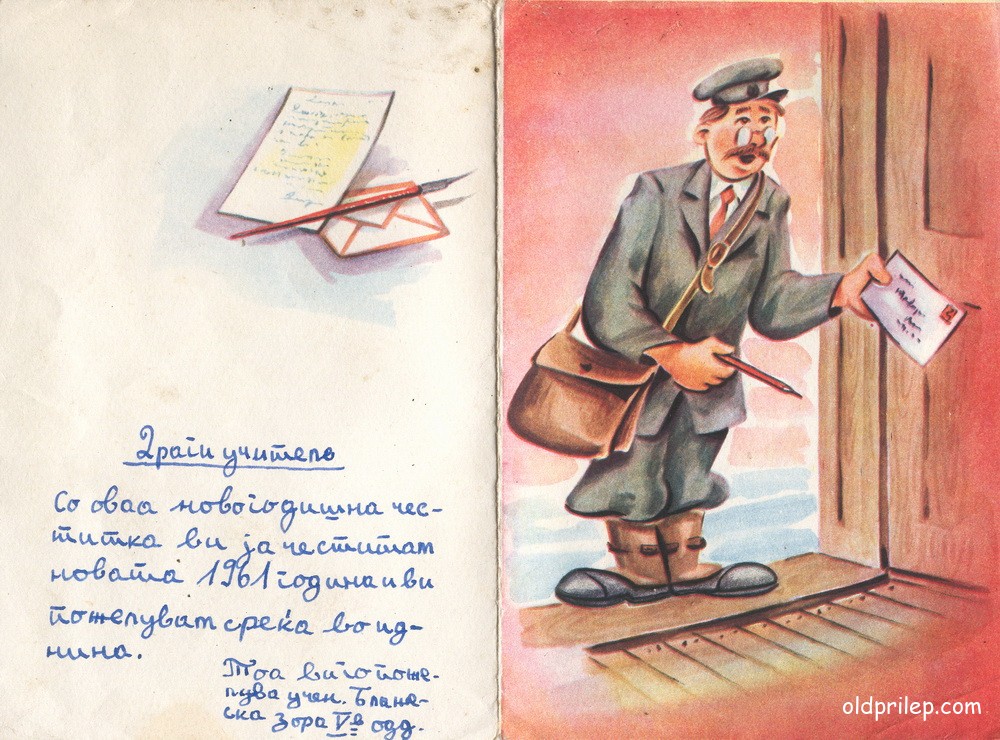 Драги учителе
Со оваа новогодишна чес-
титка ви ја честитам
новата 1961 година и ви
пожелувам среќа во ид-
нина.
Тоа ви го поже-
лува учен. Блане-
ска Зора Vв одд.
oldprilep.com